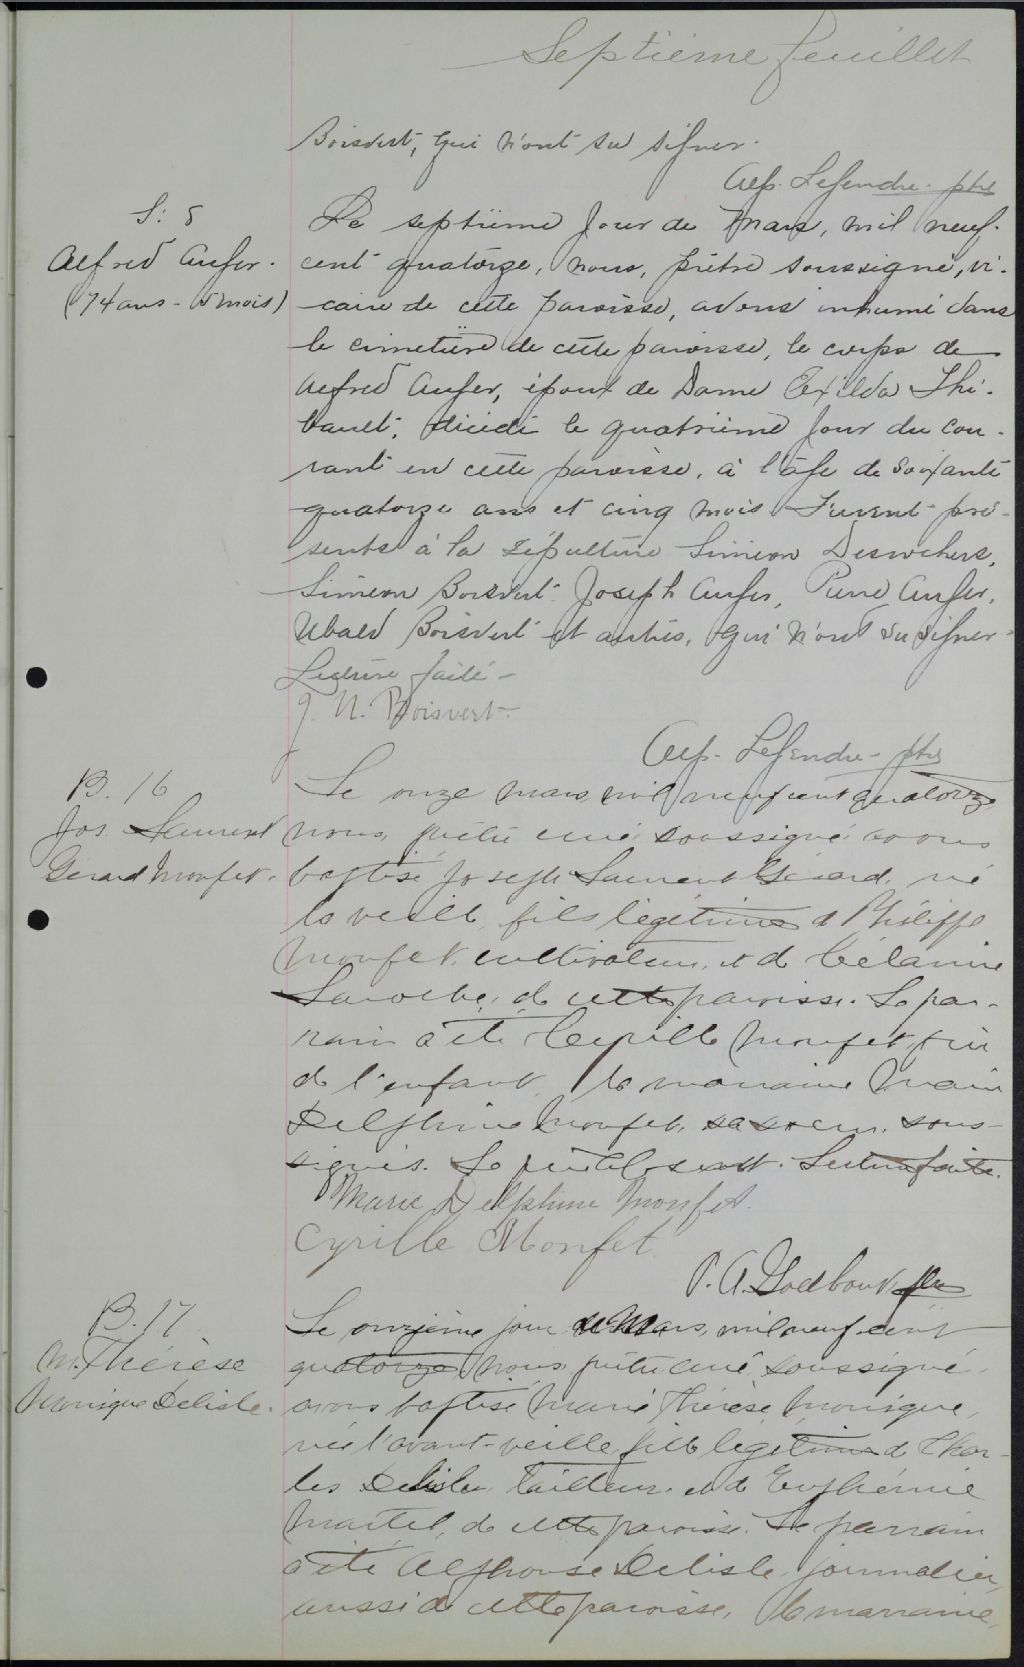 Septième feuillet
Boisvert, qui n'ont su signer.
Alp. Legendre. ptre
S: 5
Alfred Auger.
(74 ans - 5 mois)
Le septième jour de Mars, mil neuf-
cent quatorze, nous, prêtre soussigné, vi-
caire de cette paroisse, avons inhumé dans
le cimetière de cette paroisse, le corps de
Alfred Auger, époux de Dame Exilda Thi-
bault, décédé le quatrième jour du cou-
rant en cette paroisse, à l'âge de soixante
quatorze ans et cinq mois. Furent pré-
sents à la sépulture Siméon Desrochers,
Siméon Boisvert, Joseph Auger, Pierre Auger,
Ubald Boisvert et autres, qui n'ont su signer.
Lecture faite -
J. N. Boisvert.
Alp. Legendre - ptre
B. 16
Jos. Laurent
Gérard Monfet.
Le onze mars mil neuf cent quatorze,
nous, prêtre curé soussigné avons
baptisé Joseph Laurent Gérard, né
la veille, fils légitime de Philippe
Monfet, cultivateur, et de Célanire
Laroche, de cette paroisse. Le par-
rain a été Cyrille Monfet,
de l'enfant, la marraine Marie
Delphine Monfet, sa soeur, sous-
signés. Lecture faite.
Marie Delphine Monfet.
Cyrille Monfet
P. A. Godbout, ptre
B. 17
M. Thérèse
Monique Delisle.
Le onzième jour de Mars, mil neuf cent
quatorze, nous, prêtre curé soussigné,
avons baptisé Marie Thérèse Monique,
née l'avant-veille, fille légitime de Char-
les Delisle, tailleur, et de Euphémie
Martel, de cette paroisse. Le parrain
a été Alphonse Delisle, journalier,
aussi de cette paroisse, la marraine,